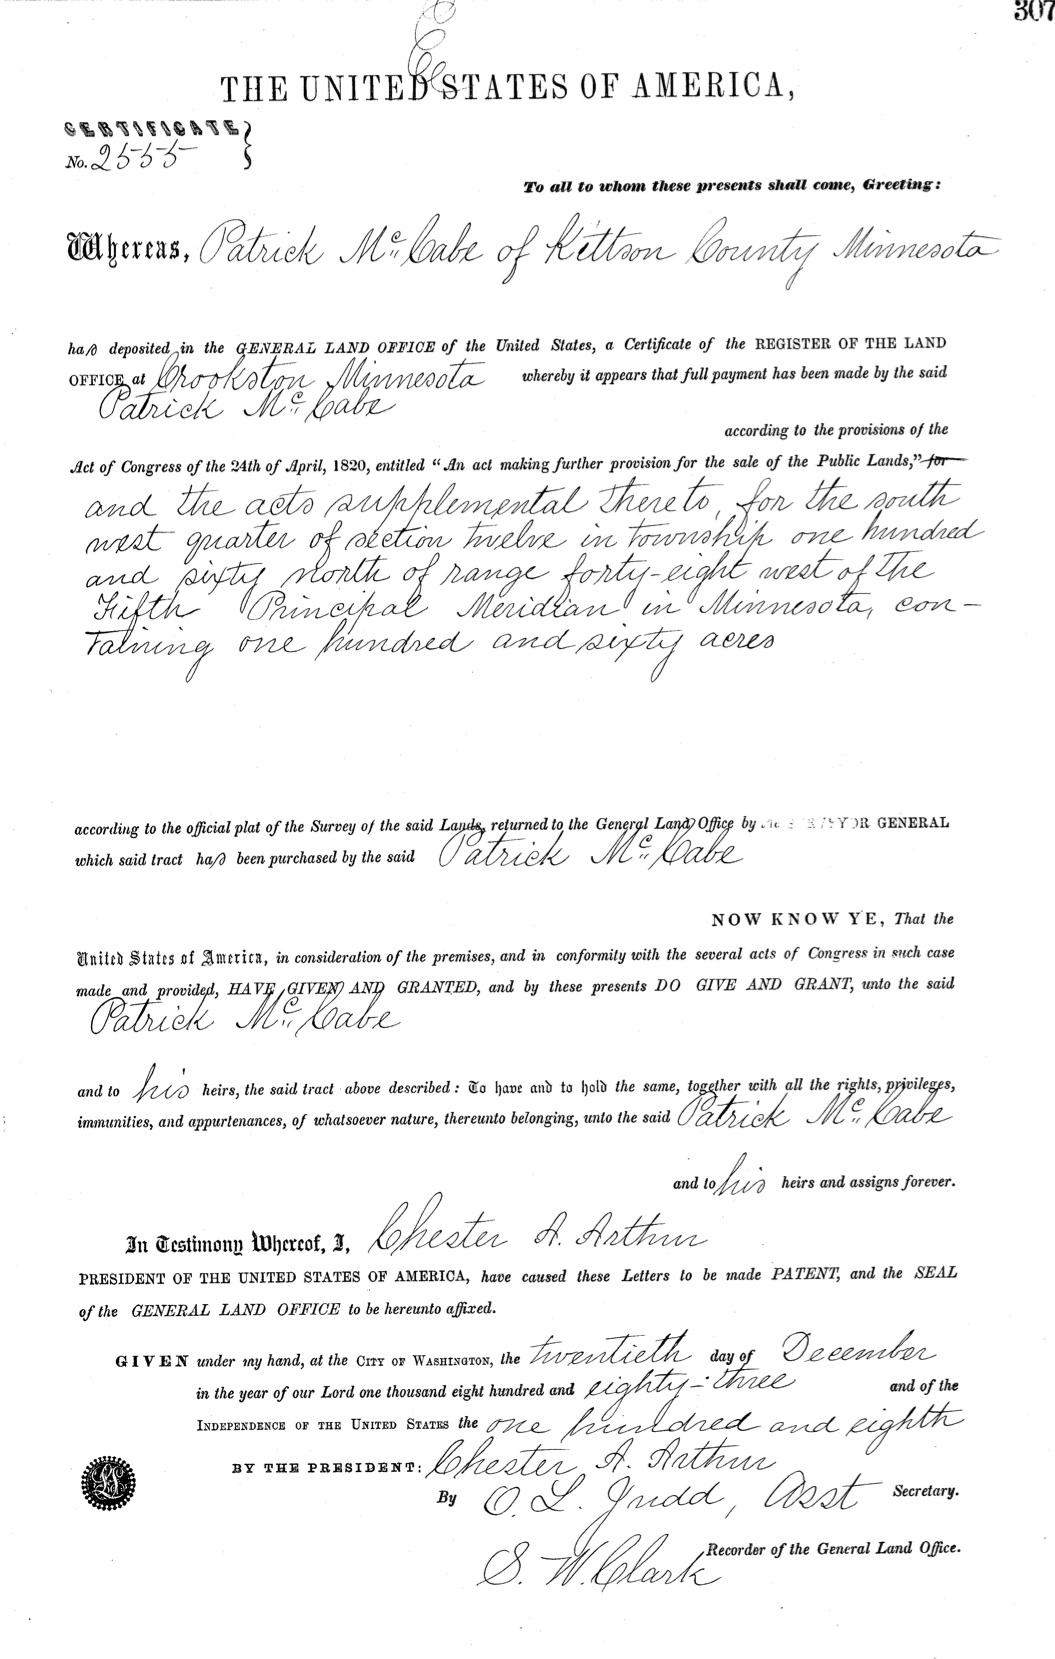 307
THE UNITED STATES OF AMERICA,
CERTIFICATE
No. 2555
To all to whom these presents shall come, Greeting:
Whereas, Patrick McCabe of Kittson County Minnesota
has deposited in the GENERAL LAND OFFICE of the United States, a Certificate of the REGISTER OF THE LAND
OFFICE at Crookston Minnesota whereby it appears that full payment has been made by the said
Patrick McCabe
according to the provisions of the
Act of Congress of the 24th of April, 1820, entitled "An act making further provision for the sale of the Public Lands," for
and the acts supplemental thereto, for the south
west quarter of section twelve in township one hundred
and sixty north of range forty-eight west of the
Fifth Principal Meridian in Minnesota, con-
taining one hundred and sixty acres
according to the official plat of the Survey of the said Lands, returned to the General Land Office by the SURVEYOR GENERAL
which said tract has been purchased by the said Patrick McCabe
NOW KNOW YE, That the
United States of America, in consideration of the premises, and in conformity with the several acts of Congress in such case
made and provided, HAVE GIVEN AND GRANTED, and by these presents DO GIVE AND GRANT, unto the said
Patrick McCabe
and to his heirs, the said tract above described: To have and to hold the same, together with all the rights, privileges,
immunities, and appurtenances, of whatsoever nature, thereunto belonging, unto the said Patrick McCabe
and to his heirs and assigns forever.
In Testimony Whereof, I, Chester A. Arthur
PRESIDENT OF THE UNITED STATES OF AMERICA, have caused these Letters to be made PATENT, and the SEAL
of the GENERAL LAND OFFICE to be hereunto affixed.
GIVEN under my hand, at the CITY OF WASHINGTON, the twentieth day of December
in the year of our Lord one thousand eight hundred and eighty-three and of the
INDEPENDENCE OF THE UNITED STATES the one hundred and eighth
BY THE PRESIDENT: Chester A. Arthur
By O. L. Judd, Asst Secretary.
S. W. Clark Recorder of the General Land Office.